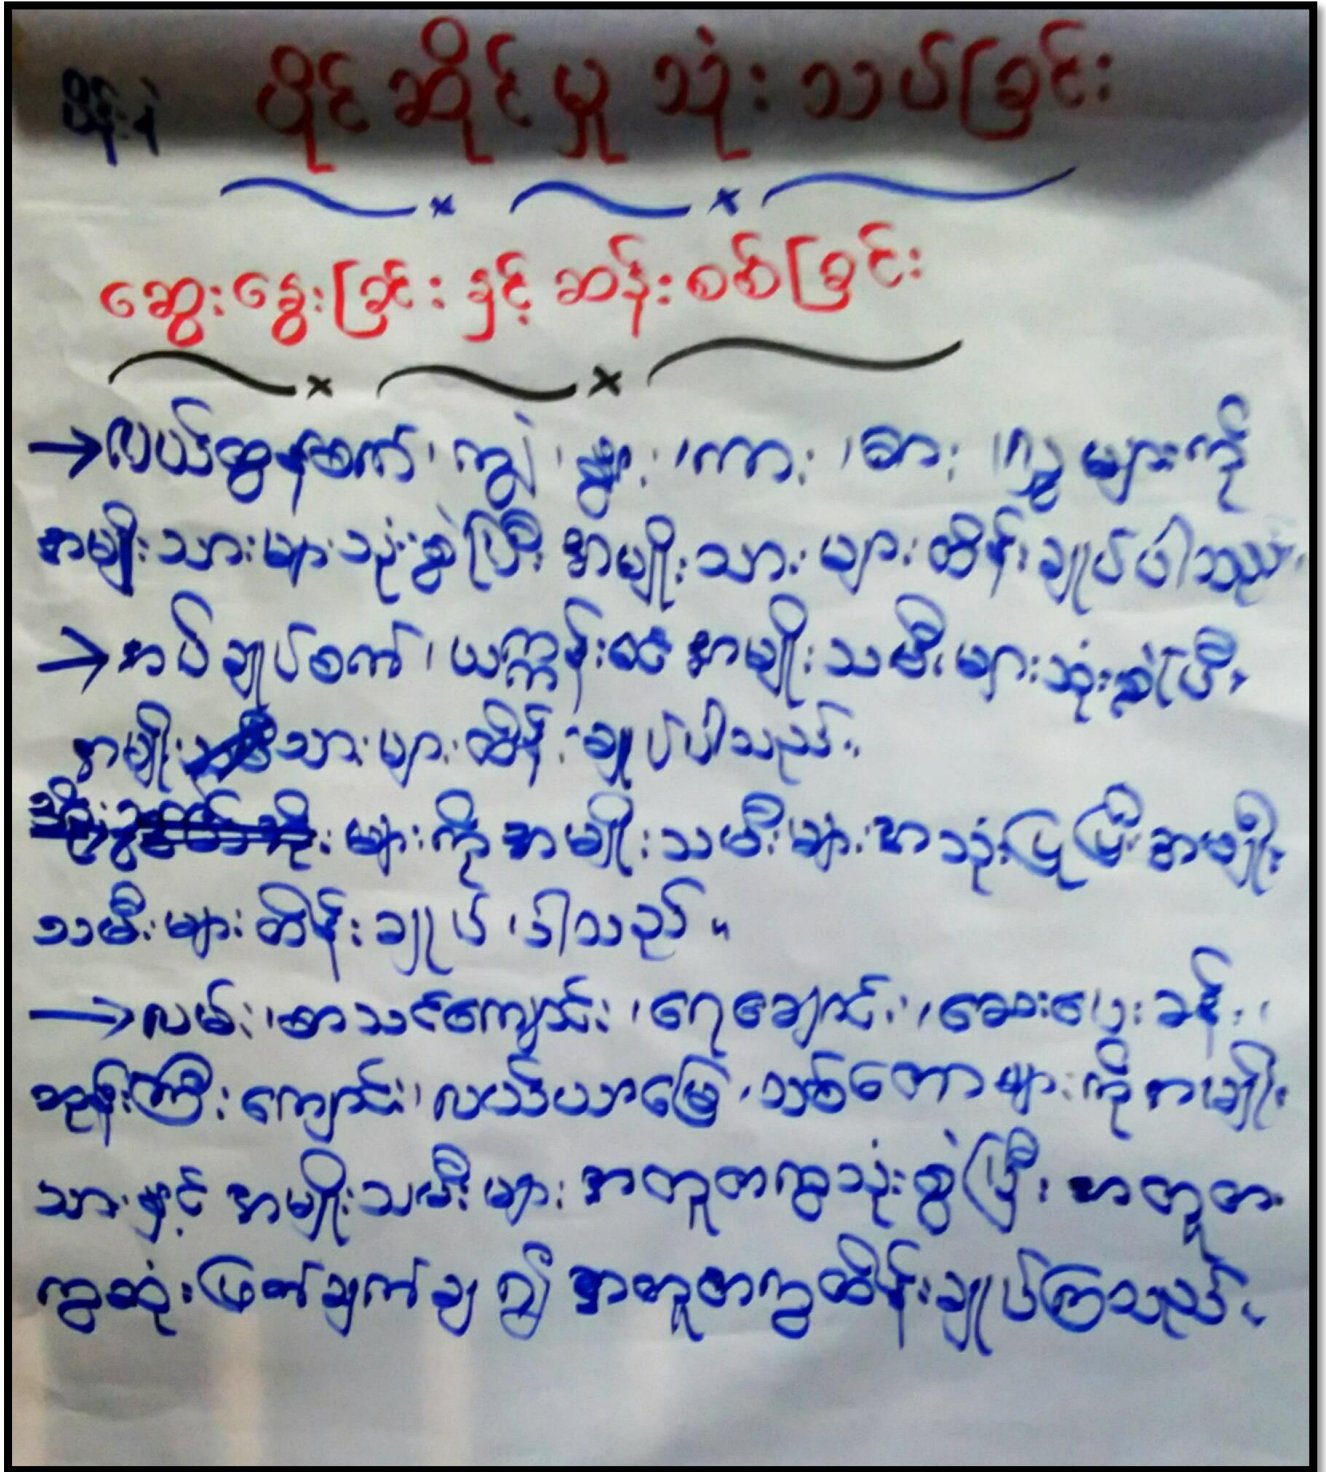 ပိန်းနဲ ပိုင်ဆိုင်မှု သုံးသပ်ခြင်း
ဆွေးနွေးခြင်း နှင့် ဆန်းစစ်ခြင်း
→လယ်ထွန်စက်၊ ကျွဲ၊ နွား၊ ကား၊ ဓား၊ လွှများကို
အမျိုးသားများသုံးစွဲပြီး အမျိုးသားများထိန်းချုပ်ပါသည်။
→အပ်ချုပ်စက်၊ ယက္ကန်းစင် အမျိုးသမီးများသုံးစွဲပြီး
အမျိုးသားများထိန်းချုပ်ပါသည်။
များကို အမျိုးသမီးများအသုံးပြုပြီး အမျိုး
သမီးများထိန်းချုပ်ပါသည်။
→လမ်း၊ စာသင်ကျောင်း၊ ရေချောင်း၊ ဆေးပေးခန်း၊
ဘုန်းကြီးကျောင်း၊ လယ်ယာမြေ၊ သစ်တောများကို အမျိုး
သားနှင့် အမျိုးသမီးများ အတူတကွသုံးစွဲပြီး အတူတ
ကွဆုံးဖြတ်ချက်ချ၍ အတူတကွထိန်းချုပ်ကြသည်။